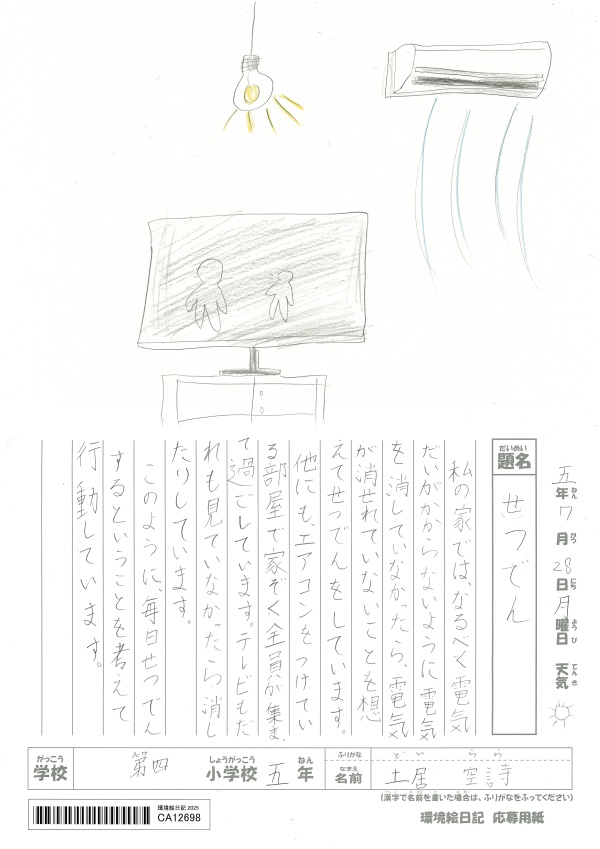 五年7月28日月曜日 天気
ねん がつ にち ようび てんき
だいめい
題名 せつでん
私の家では、なるべく電気
だいがかからないように電気
を消していなかったら、電気
が消せれていないことを想
えてせつでんをしています。
他にも、エアコンをつけてい
る部屋で家ぞく全員が集ま
て過ごしています。テレビもだ
れも見ていなかったら消し
たりしています。
このように、毎日せつでん
するということを考えて
行動しています。
がっこう しょうがっこう ねん
学校 第四 小学校 五年
ふりがな どい らら
なまえ
名前 土居 空詩
(漢字で名前を書いた場合は、ふりがなをふってください)
環境絵日記 2025
CA12698
環境絵日記 応募用紙